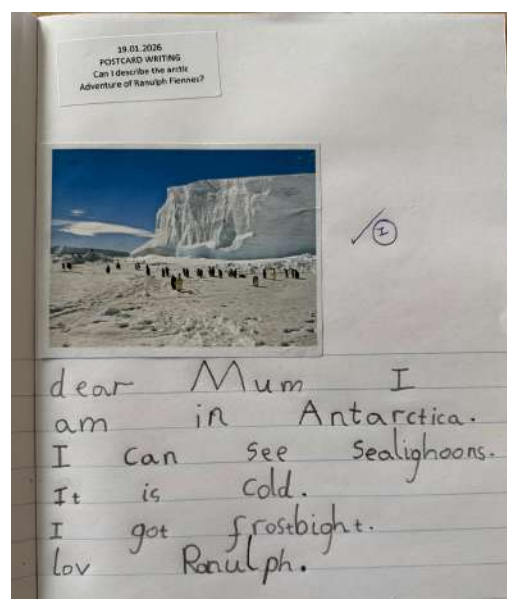 19.01.2026
POSTCARD WRITING
Can I describe the arctic
Adventure of Ranulph Fiennes?
I
dear Mum I
am in Antarctica.
I can see sealighoons.
It is cold.
I got frostbight.
lov Ranulph.